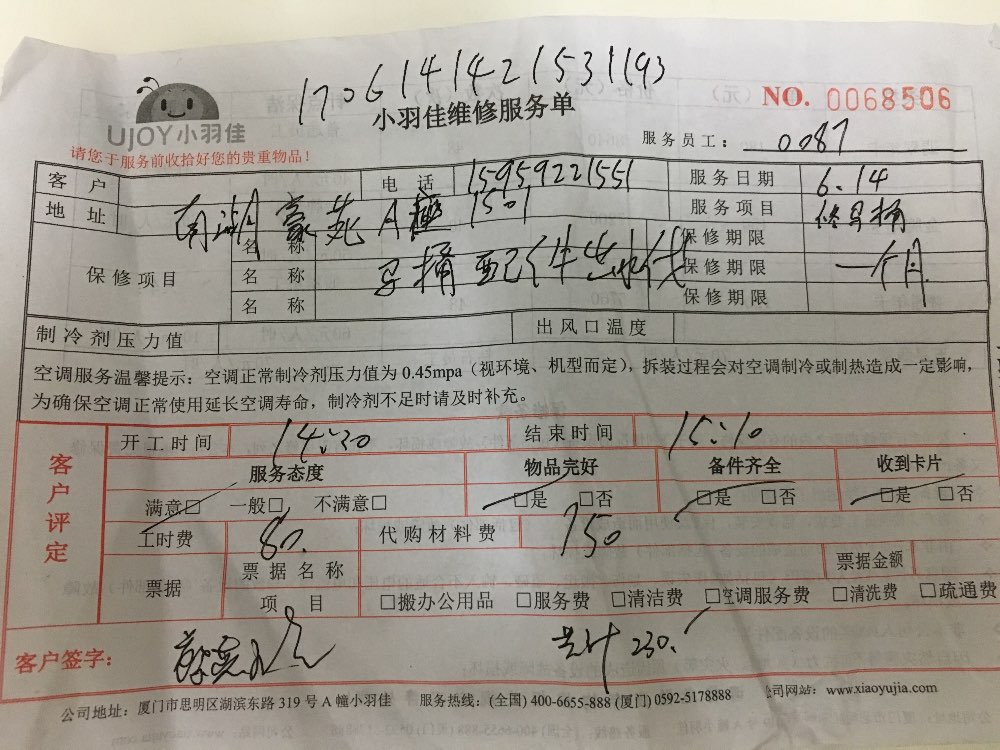 1706141421531193
UJOY小羽佳
小羽佳维修服务单
NO. 0068506
请您于服务前收拾好您的贵重物品！
服务员工： 0087
客户 电话 15959221551 服务日期 6.14
地址 南湖豪苑A 1501 服务项目 修马桶
保修项目 名称 保修期限
名称 马桶配件 保修期限 一个月
名称 保修期限
制冷剂压力值 出风口温度
空调服务温馨提示：空调正常制冷剂压力值为 0.45mpa（视环境、机型而定），拆装过程会对空调制冷或制热造成一定影响，
为确保空调正常使用延长空调寿命，制冷剂不足时请及时补充。
客户评定
开工时间 14:30 结束时间 15:10
服务态度 物品完好 备件齐全 收到卡片
满意□ 一般□ 不满意□ □是 □否 □是 □否 □是 □否
工时费 80. 代购材料费 150
票据 票据名称 票据金额
项目 □搬办公用品 □服务费 □清洁费 □空调服务费 □清洗费 □疏通费
客户签字： 共计 230.
公司地址：厦门市思明区湖滨东路 319 号 A 幢小羽佳 服务热线：(全国) 400-6655-888 (厦门) 0592-5178888 公司网站：www.xiaoyujia.com